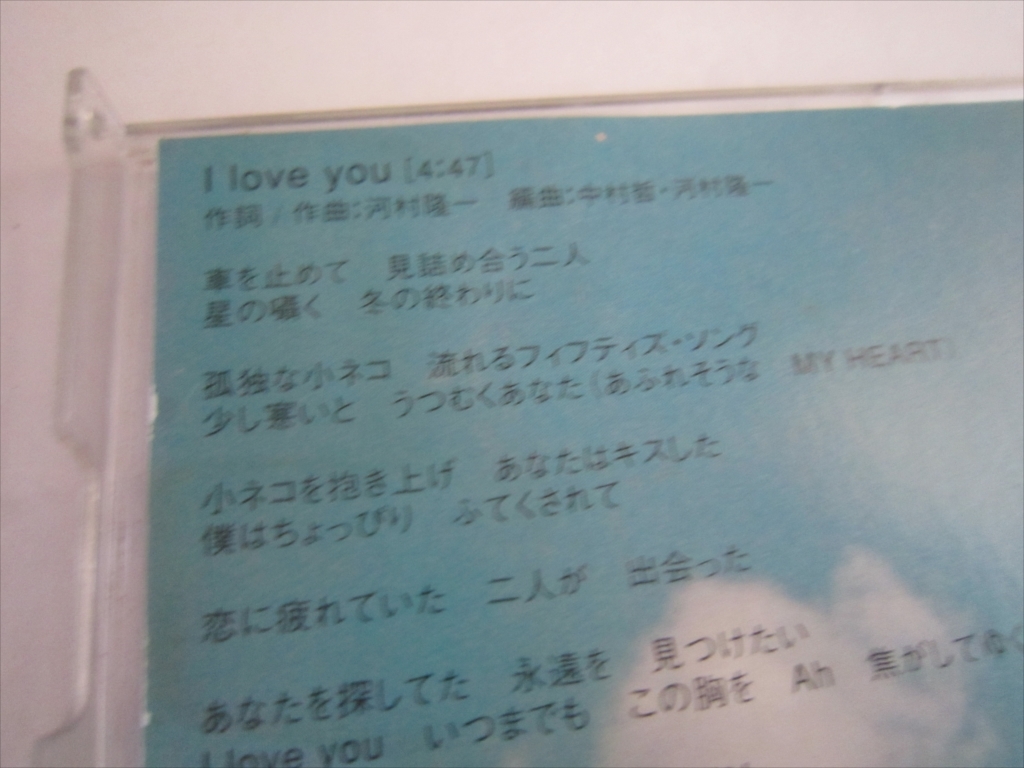 I love you [4:47]
作詞 / 作曲:河村隆一　編曲:中村哲・河村隆一
車を止めて　見詰め合う二人
星の囁く　冬の終わりに
孤独な小ネコ　流れるフィフティズ・ソング
少し寒いと　うつむくあなた (あふれそうな　MY HEART)
小ネコを抱き上げ　あなたはキスした
僕はちょっぴり　ふてくされて
恋に疲れていた　二人が　出会った
あなたを探してた　永遠を　見つけたい
I love you　いつまでも　この胸を　Ah　焦がしてゆく